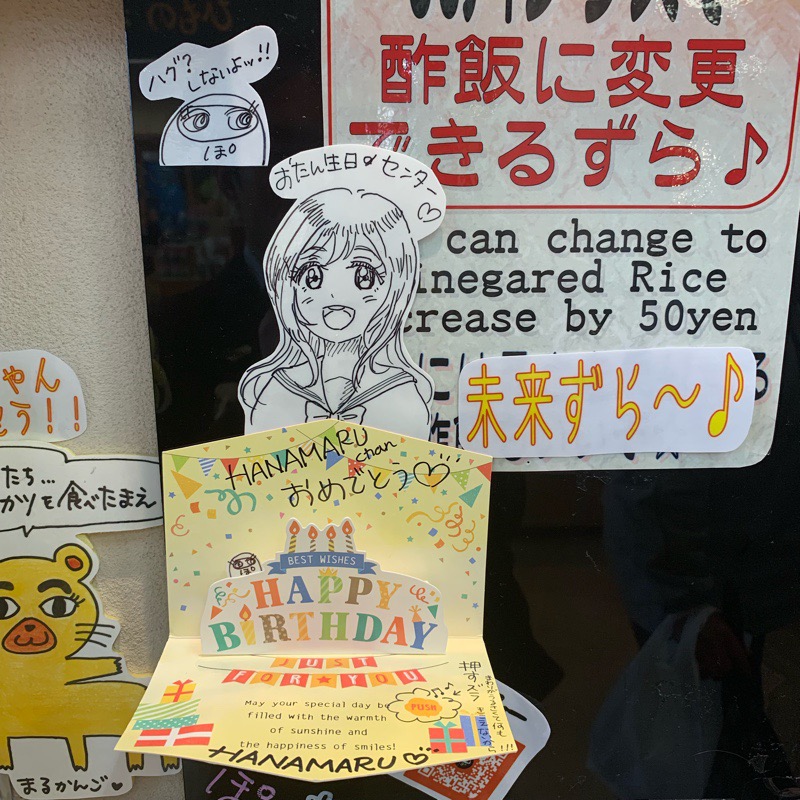 ハグ?
しないよッ!!
ぽ
酢飯に変更
できるずら♪
おたん生日♡センター
♡
can change to
inegared Rice
crease by 50yen
未来ずら〜♪
ゃん
とう!!
たち...
カツを食べたまえ
HANAMARU
chan
おめでとう♡
BEST WISHES
HAPPY
BIRTHDAY
JUST
FOR★YOU
May your special day be
filled with the warmth
of sunshine and
the happiness of smiles!
PUSH
押すズラ
HANAMARU♡
まるかんご♥
ぽ